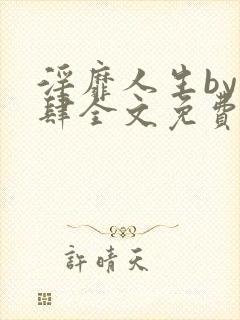 淫靡人生by
肆全文免費
許晴天